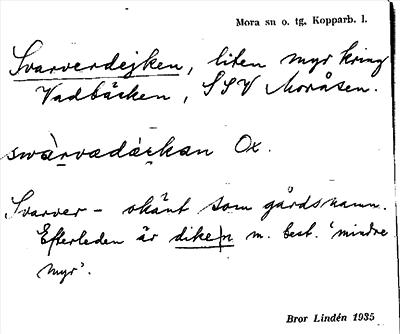 Mora sn o. tg. Kopparb. l.
Svarverdejken, liten myr kring
Vadbäcken, SSV Moråsen.
swàrvadàikan Ox.
Svarver- okänt som gårdsnamn.
Efterleden är diken m. best. 'mindre
myr'.
Bror Lindén 1935